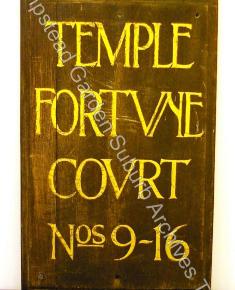 TEMPLE
FORTVNE
COVRT
Nos 9-16
Hampstead Garden Suburb Archives T